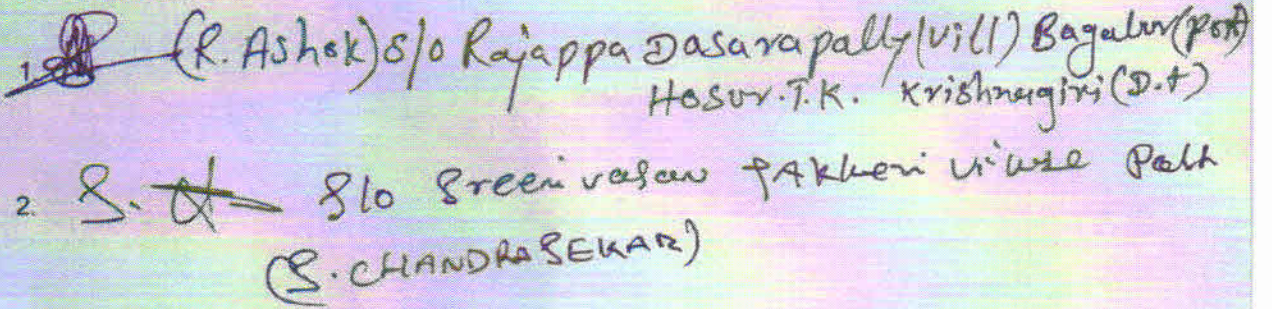 1. (R. Ashok) S/o Rajappa Dasarapally (Vill) Bagalur (post)
Hosur. T.K. Krishnagiri (D.t)
2. S. S/o Sreenivasan
(S. CHANDRASEKAR)